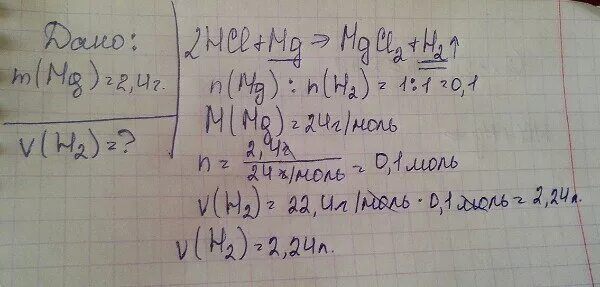 Дано:
m(Mg)=2,4г.
V(H₂)=?
2HCl+Mg→MgCl₂+H₂↑
n(Mg):n(H₂)=1:1=0,1
M(Mg)=24г/моль
n=2,4г/24г/моль=0,1моль
V(H₂)=22,4г/моль·0,1моль=2,24л.
V(H₂)=2,24л.